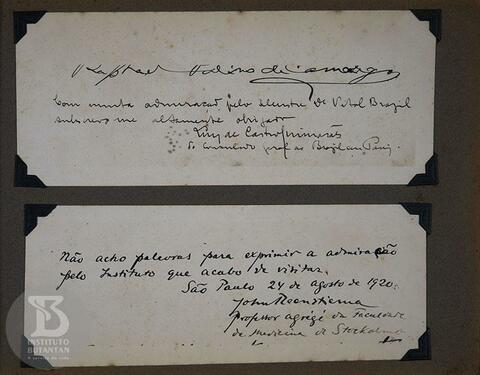 Raphael de Camargo
Com muita admiração pelo de Vital Brazil
subscrevo me altamente obrigado
Ruy de Castro Guimarães
do Consulado do Brazil em
Não acho palavras para exprimir a admiração
pelo Instituto que acabo de visitar.
São Paulo 24 de Agosto de 1920.
John Reenstierna
Professor agrégé da Faculdade
de Medicina de Stockholm
INSTITUTO
BUTANTAN
A serviço da vida